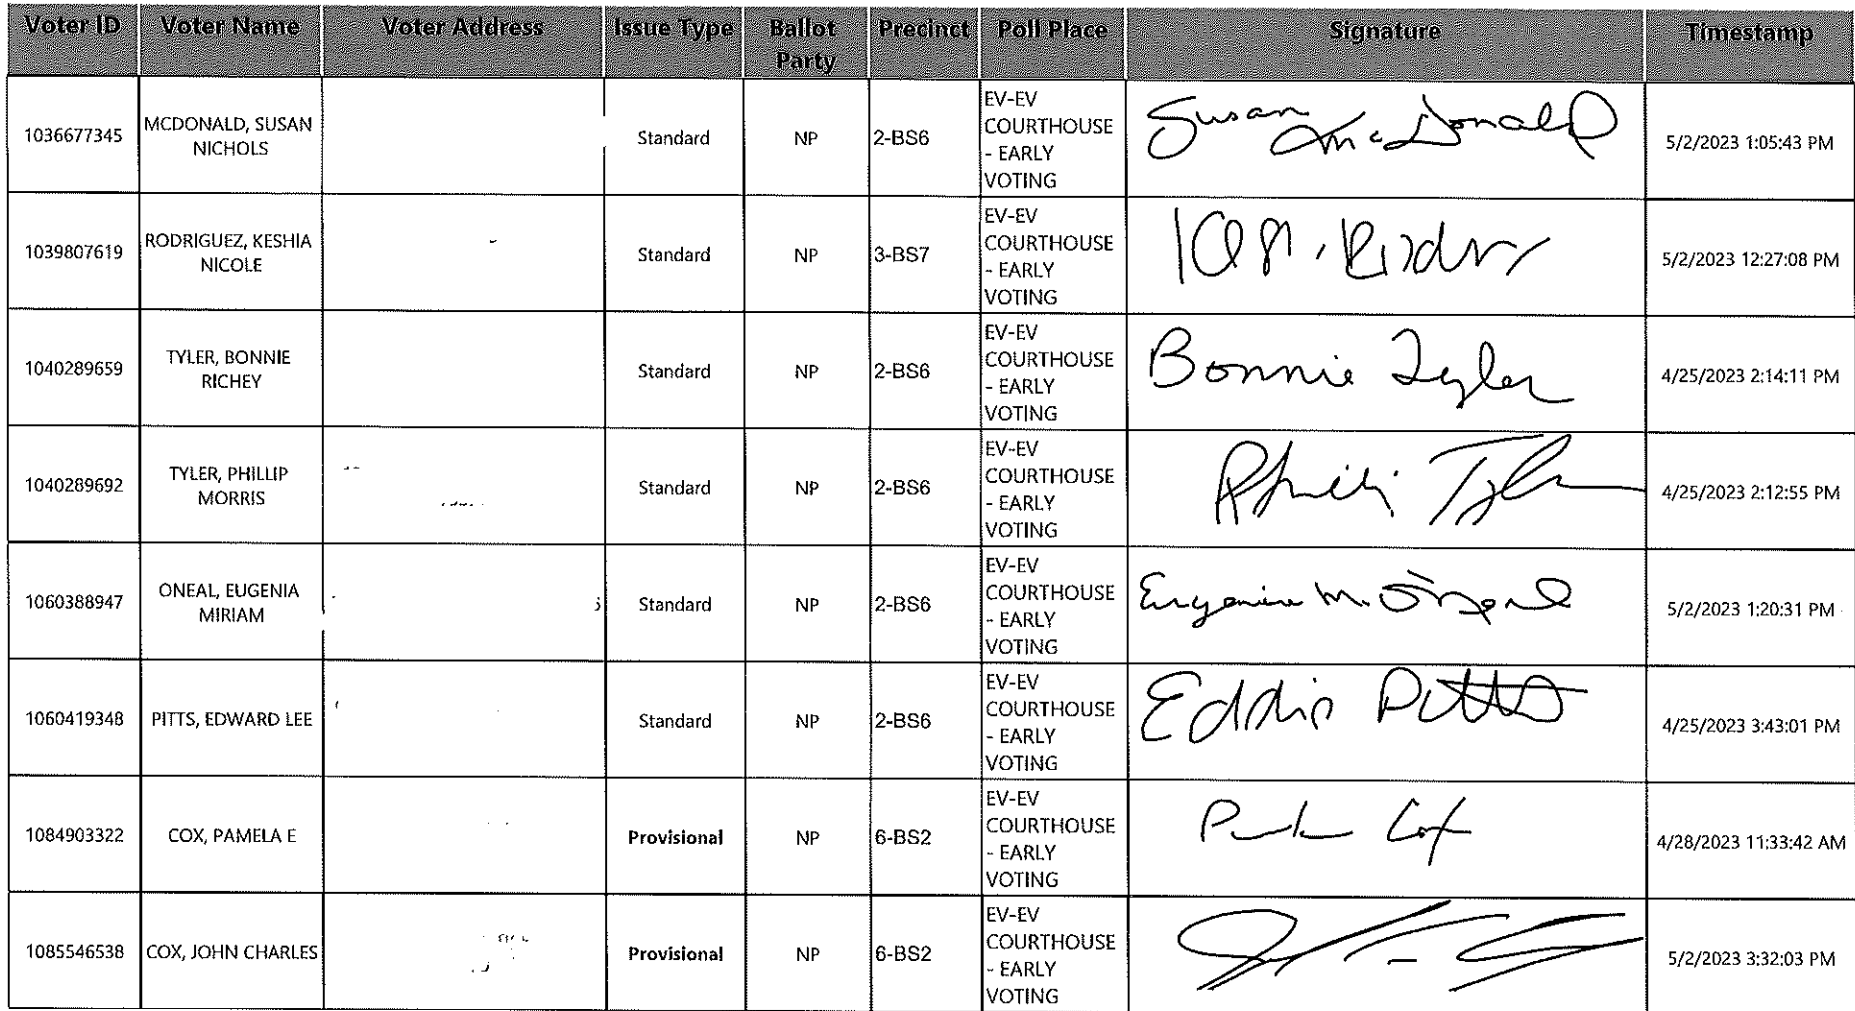 Voter ID Voter Name Voter Address Issue Type Ballot Party Precinct Poll Place Signature Timestamp
1036677345 MCDONALD, SUSAN NICHOLS Standard NP 2-BS6 EV-EV COURTHOUSE - EARLY VOTING Susan McDonald 5/2/2023 1:05:43 PM
1039807619 RODRIGUEZ, KESHIA NICOLE Standard NP 3-BS7 EV-EV COURTHOUSE - EARLY VOTING 5/2/2023 12:27:08 PM
1040289659 TYLER, BONNIE RICHEY Standard NP 2-BS6 EV-EV COURTHOUSE - EARLY VOTING Bonnie Tyler 4/25/2023 2:14:11 PM
1040289692 TYLER, PHILLIP MORRIS Standard NP 2-BS6 EV-EV COURTHOUSE - EARLY VOTING 4/25/2023 2:12:55 PM
1060388947 ONEAL, EUGENIA MIRIAM Standard NP 2-BS6 EV-EV COURTHOUSE - EARLY VOTING Eugenia M. O'Neal 5/2/2023 1:20:31 PM
1060419348 PITTS, EDWARD LEE Standard NP 2-BS6 EV-EV COURTHOUSE - EARLY VOTING Eddie Pitts 4/25/2023 3:43:01 PM
1084903322 COX, PAMELA E Provisional NP 6-BS2 EV-EV COURTHOUSE - EARLY VOTING Cox 4/28/2023 11:33:42 AM
1085546538 COX, JOHN CHARLES Provisional NP 6-BS2 EV-EV COURTHOUSE - EARLY VOTING 5/2/2023 3:32:03 PM